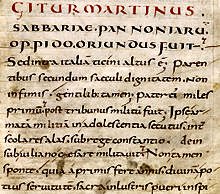 GITUR MARTINUS
SABBARIAE. PANNONIARU.
OPPIDO. ORIUNDUS FUIT.
Sed intra italia ticini altus e; paren
tibus secundum saeculi dignitatem. Non
infimis. gentilibus tamen. Pater ei miles
primu; post tribunus militu fuit. Ipse ar
mata militia in adolescentia secutus, int
scolares alas, sub rege constantio. dein
sub iuliano caesare militavit; Non tamen
sponte. quia a primis fere annis, divina po
tius servitute. sacra inlustris pueri inspi